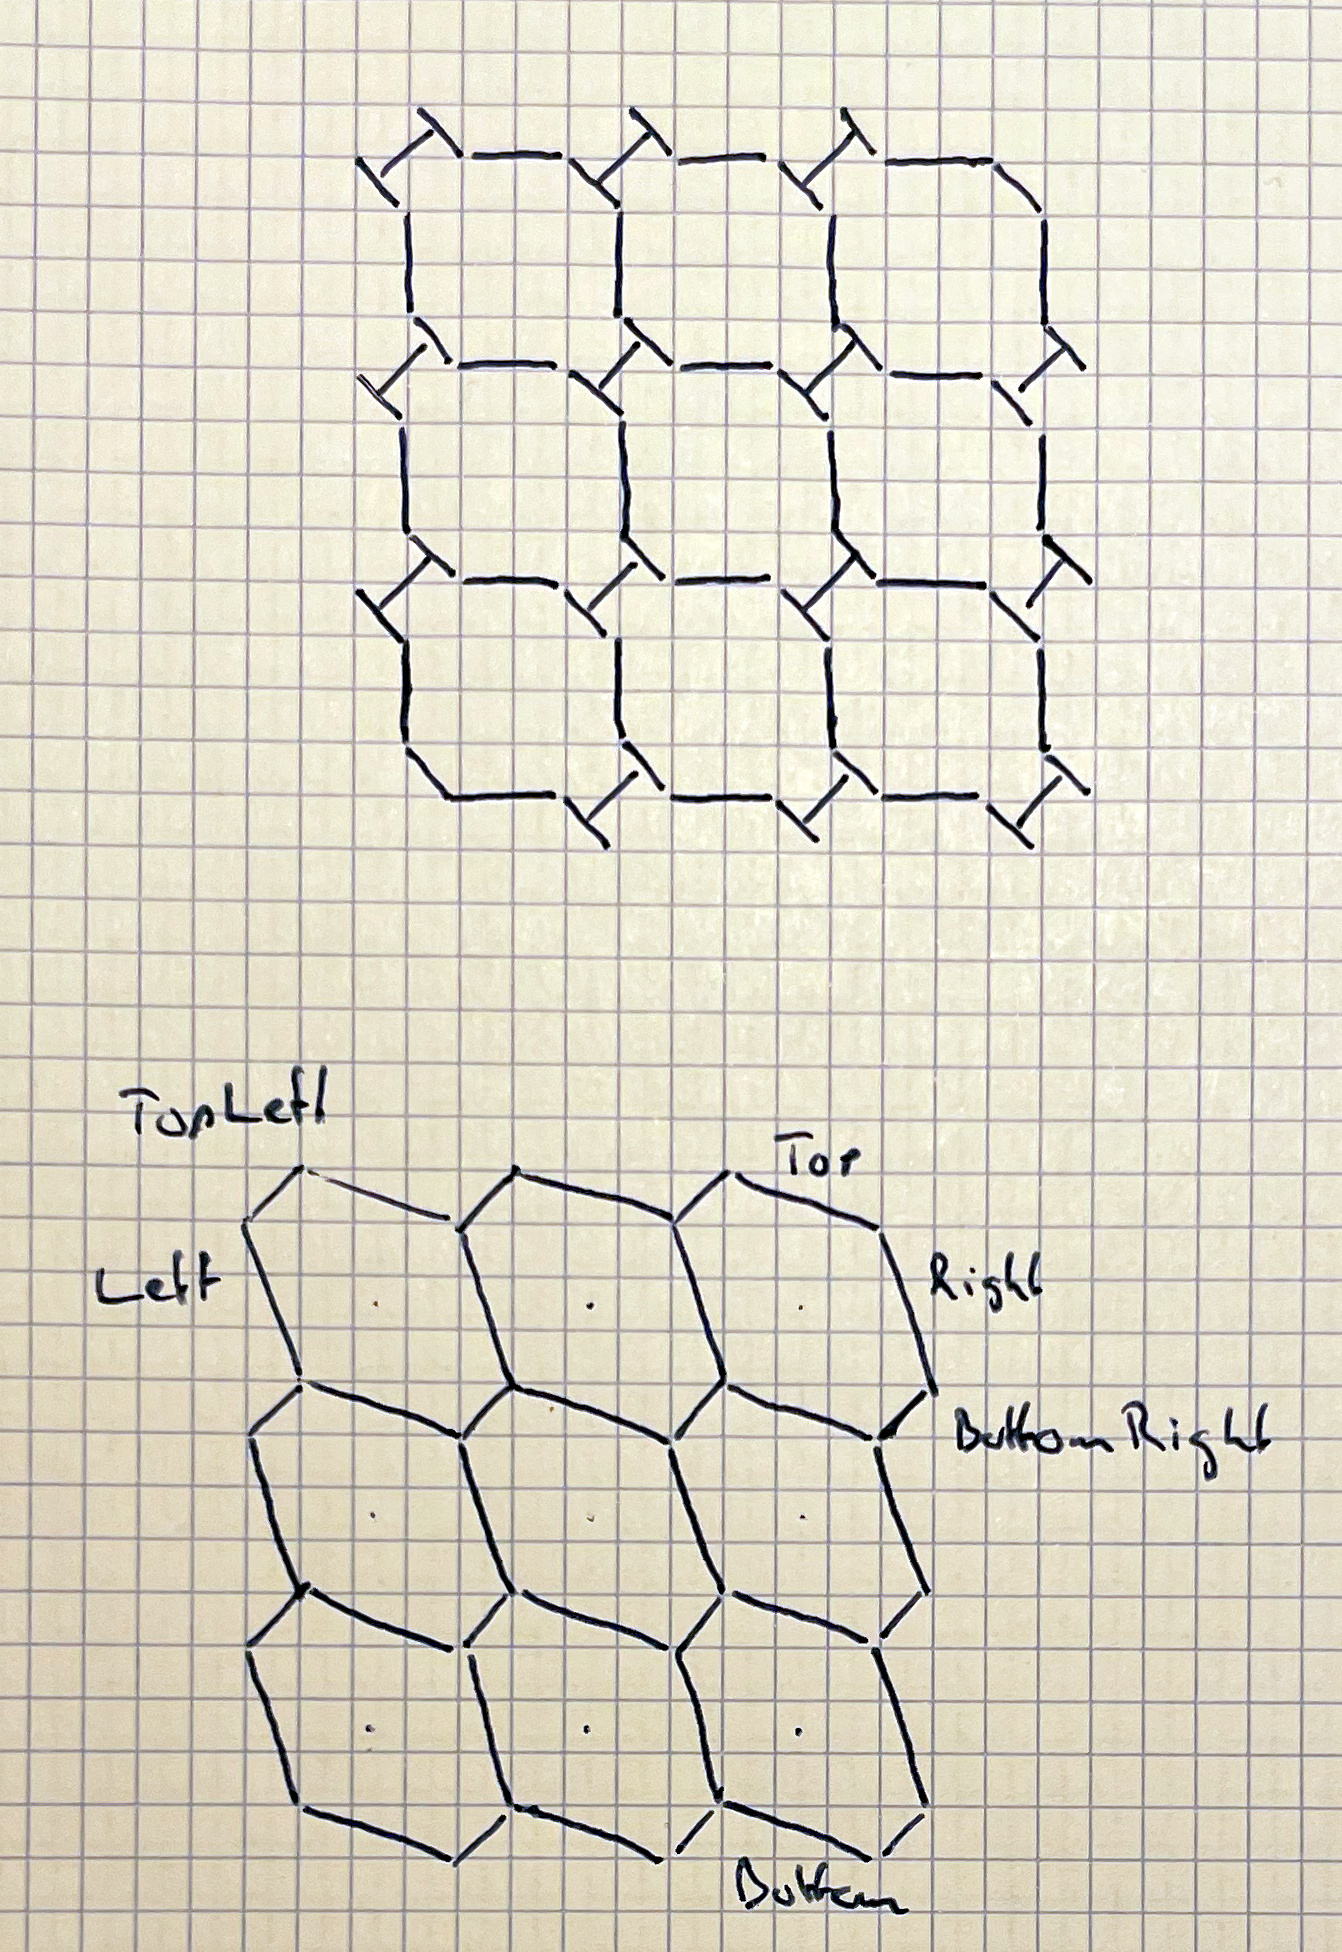 TopLeft
Top
Left
Right
Bottom Right
Bottom